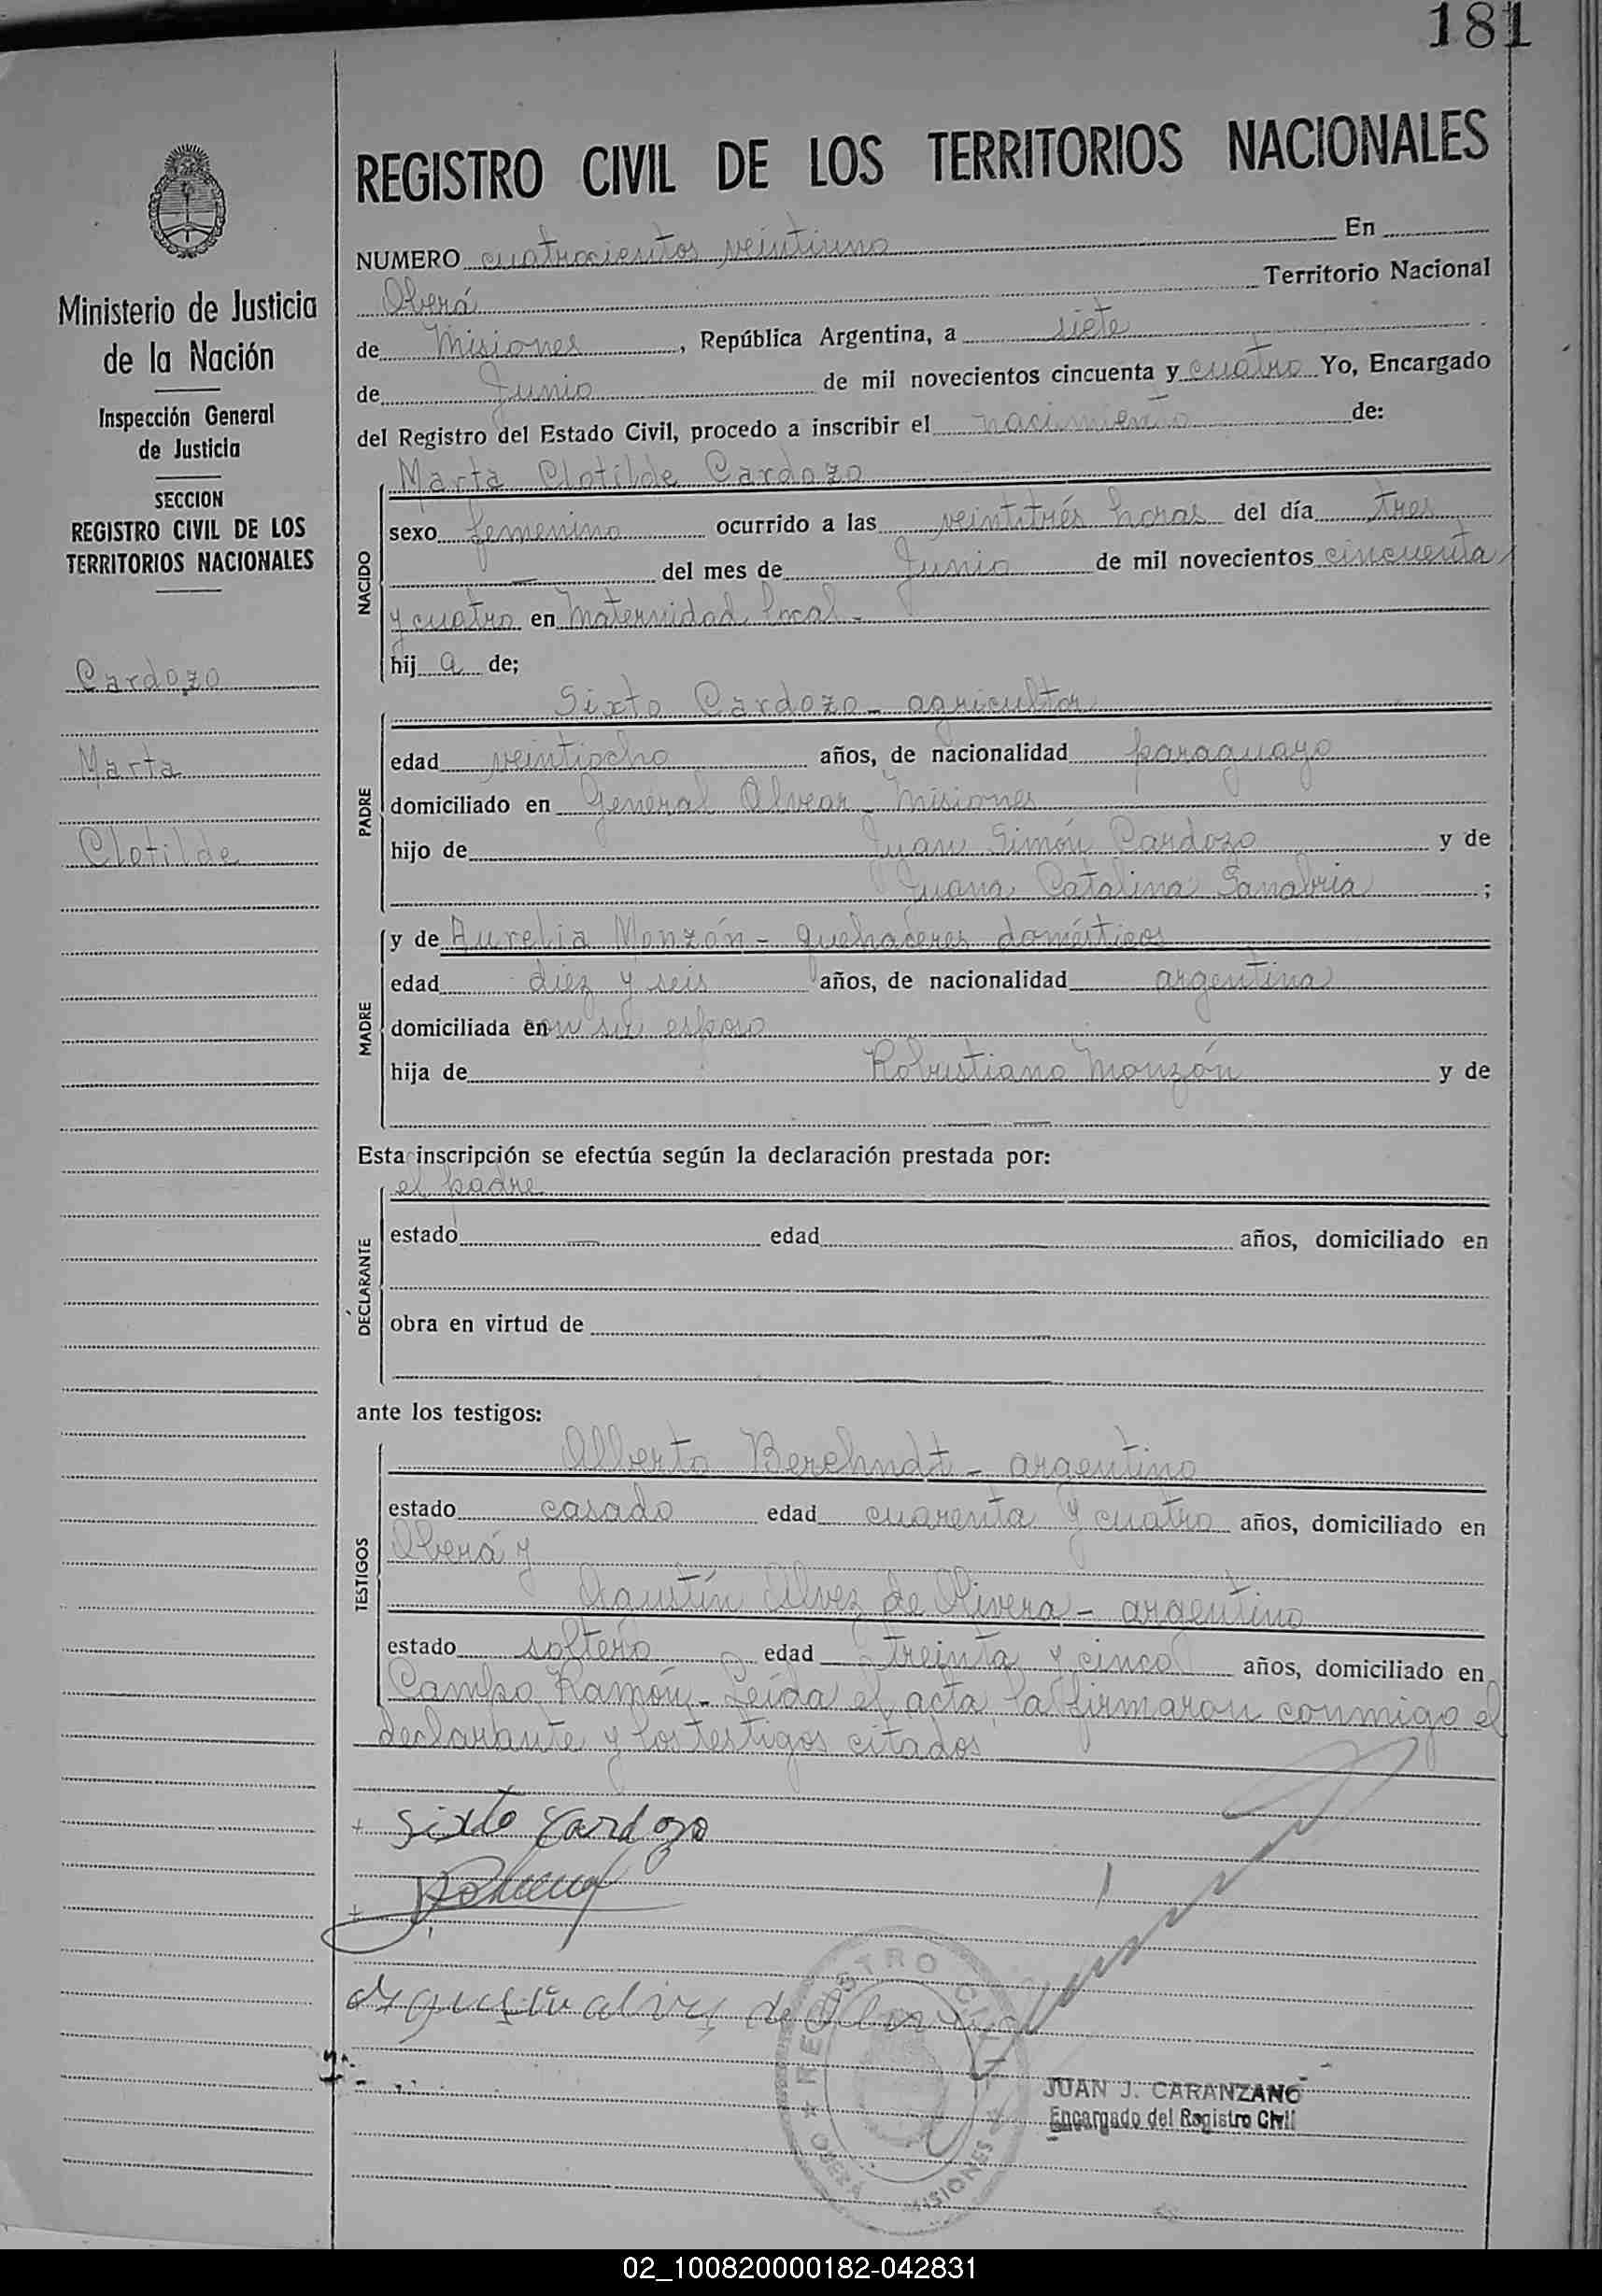 181
REGISTRO CIVIL DE LOS TERRITORIOS NACIONALES
Ministerio de Justicia
de la Nación
Inspección General
de Justicia
SECCION
REGISTRO CIVIL DE LOS
TERRITORIOS NACIONALES
Cardozo
Marta
Clotilde
NUMERO cuatrocientos veintiuno En
Oberá Territorio Nacional
de Misiones, República Argentina, a siete
de Junio de mil novecientos cincuenta y cuatro Yo, Encargado
del Registro del Estado Civil, procedo a inscribir el nacimiento de:
NACIDO
Marta Clotilde Cardozo
sexo femenino ocurrido a las veintitrés horas del día tres
— del mes de Junio de mil novecientos cincuenta
y cuatro en Maternidad local -
hij a de;
PADRE
Sixto Cardozo - agricultor
edad veintiocho años, de nacionalidad paraguayo
domiciliado en General Alvear - Misiones
hijo de Juan Simón Cardozo y de
Juana Catalina Sanabria ;
MADRE
y de Aurelia Monzón - quehaceres domésticos
edad diez y seis años, de nacionalidad argentina
domiciliada en con su esposo
hija de Robustiano Monzón y de
— —
Esta inscripción se efectúa según la declaración prestada por:
DECLARANTE
el padre
estado — edad — años, domiciliado en
obra en virtud de
ante los testigos:
TESTIGOS
Alberto Berehndt - argentino
estado casado edad cuarenta y cuatro años, domiciliado en
Oberá y
Agustín Alvez de Olivera - argentino
estado soltero edad treinta y cinco años, domiciliado en
Campo Ramón - Leída el acta, la firmaron conmigo el
declarante y los testigos citados
Sixto Cardozo
Agustin alvez de Olivera
REGISTRO CIVIL
OBERA MISIONES
JUAN J. CARANZANO
Encargado del Registro Civil
02_100820000182-042831